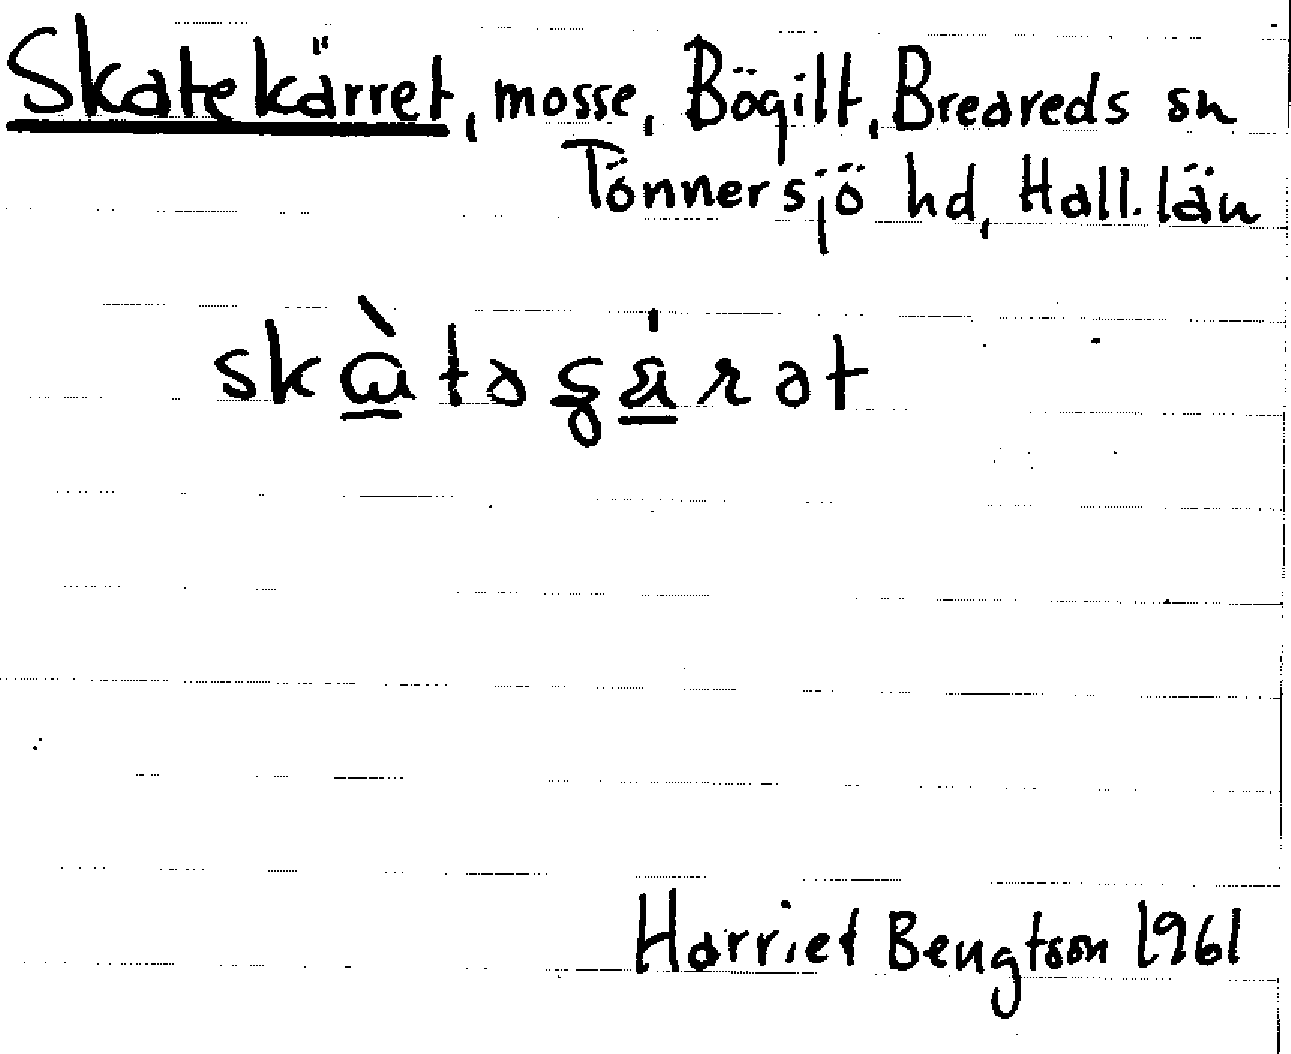 Skatekärret, mosse, Bögilt, Breareds sn
Tönnersjö hd, Hall. län
skɑ̀təʂárət
Harriet Bengtson 1961